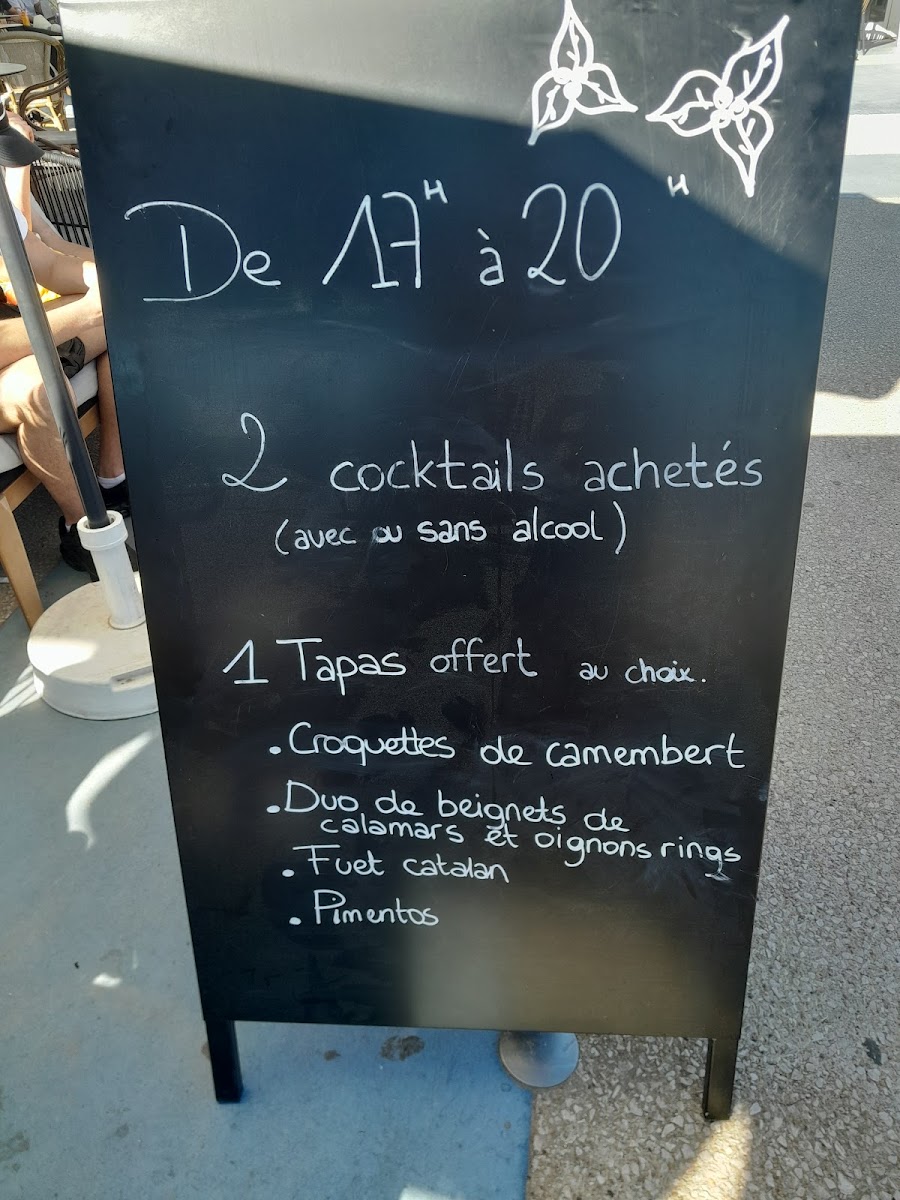 De 17H à 20 H
2 cocktails achetés
(avec ou sans alcool)
1 Tapas offert au choix.
. Croquettes de camembert
. Duo de beignets de
calamars et oignons rings
. Fuet catalan
. Pimentos